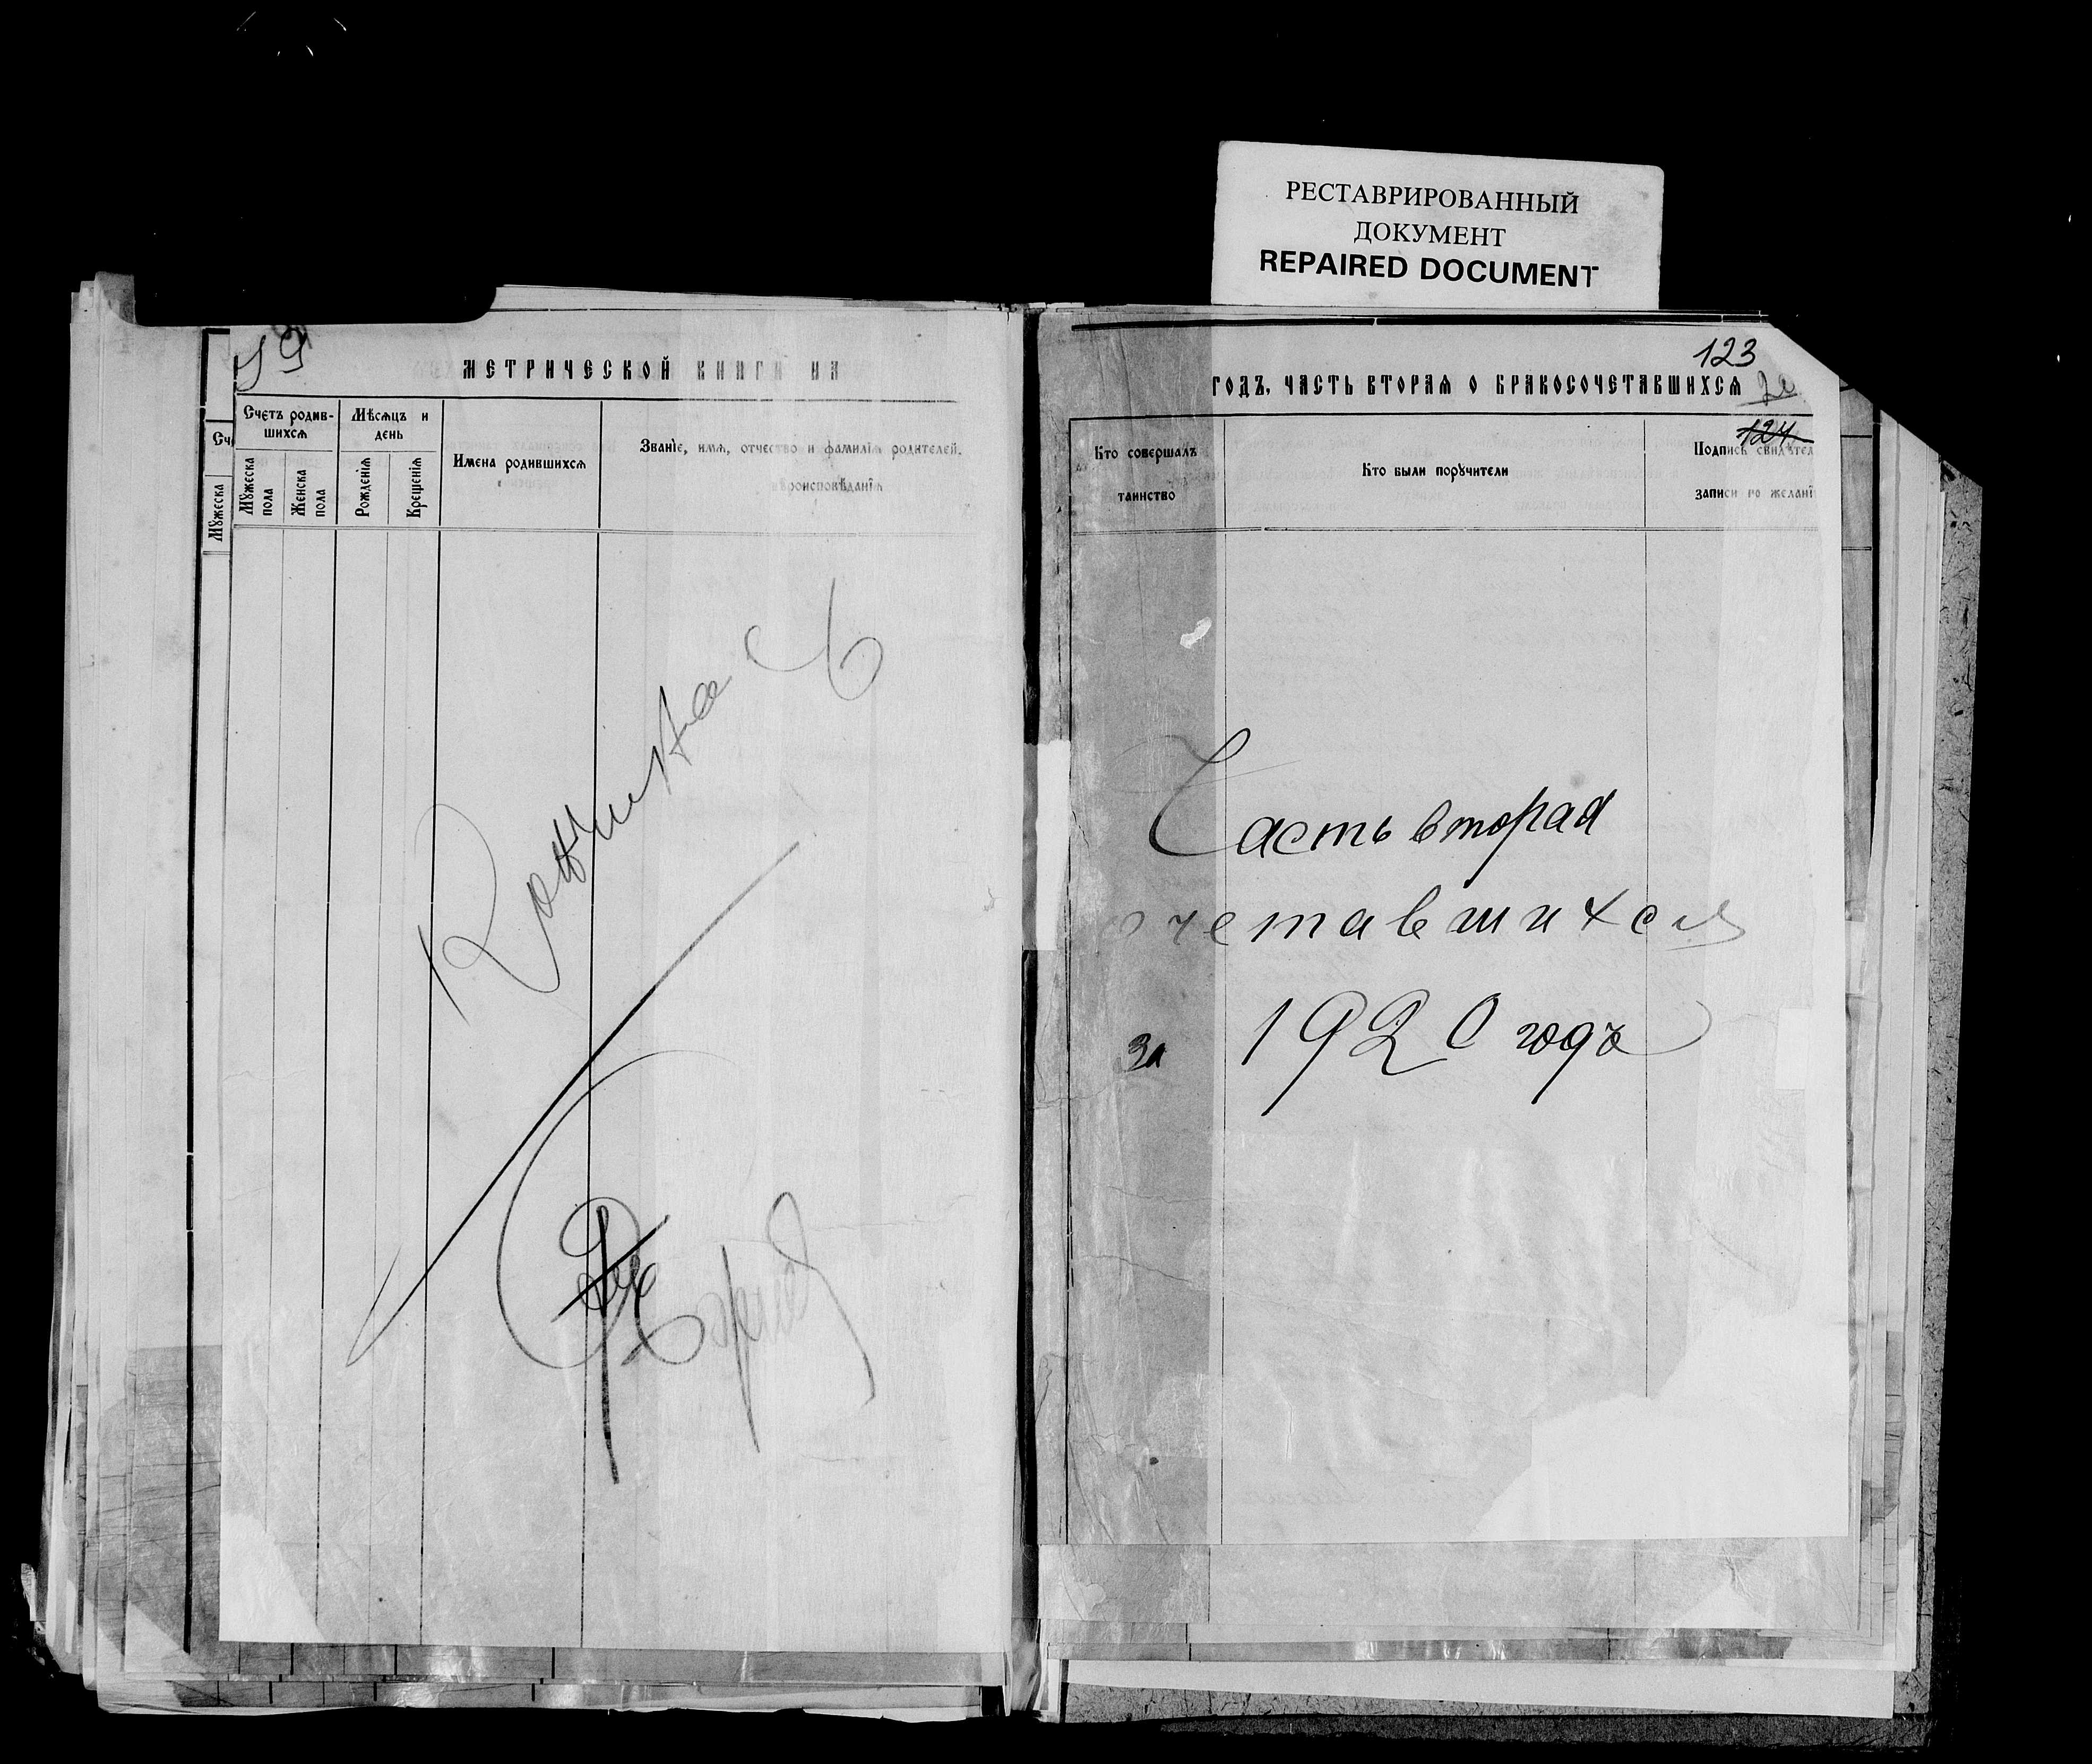 РЕСТАВРИРОВАННЫЙ
ДОКУМЕНТ
REPAIRED DOCUMENT
МЕТРИЧЕСКОЙ КНИГИ НА
Счетъ родив-
шихсѧ
Мѣсѧцъ и
день
Имена родившихсѧ
Званіе, имѧ, отчество и фамиліѧ родителей,
вѣроисповѣданіѧ
Мꙋжеска
пола
Женска
пола
Рожденіѧ
Крещеніѧ
Мꙋжеска
123
ГОДЪ, ЧАСТЬ ВТОРАѦ О БРАКОСОЧЕТАВШИХСѦ
124
Кто совершалъ
таинство
Кто были порꙋчители
Подпись свидѣтел
записи по желані
Часть вторая
очетавшихся
За 1920 годъ